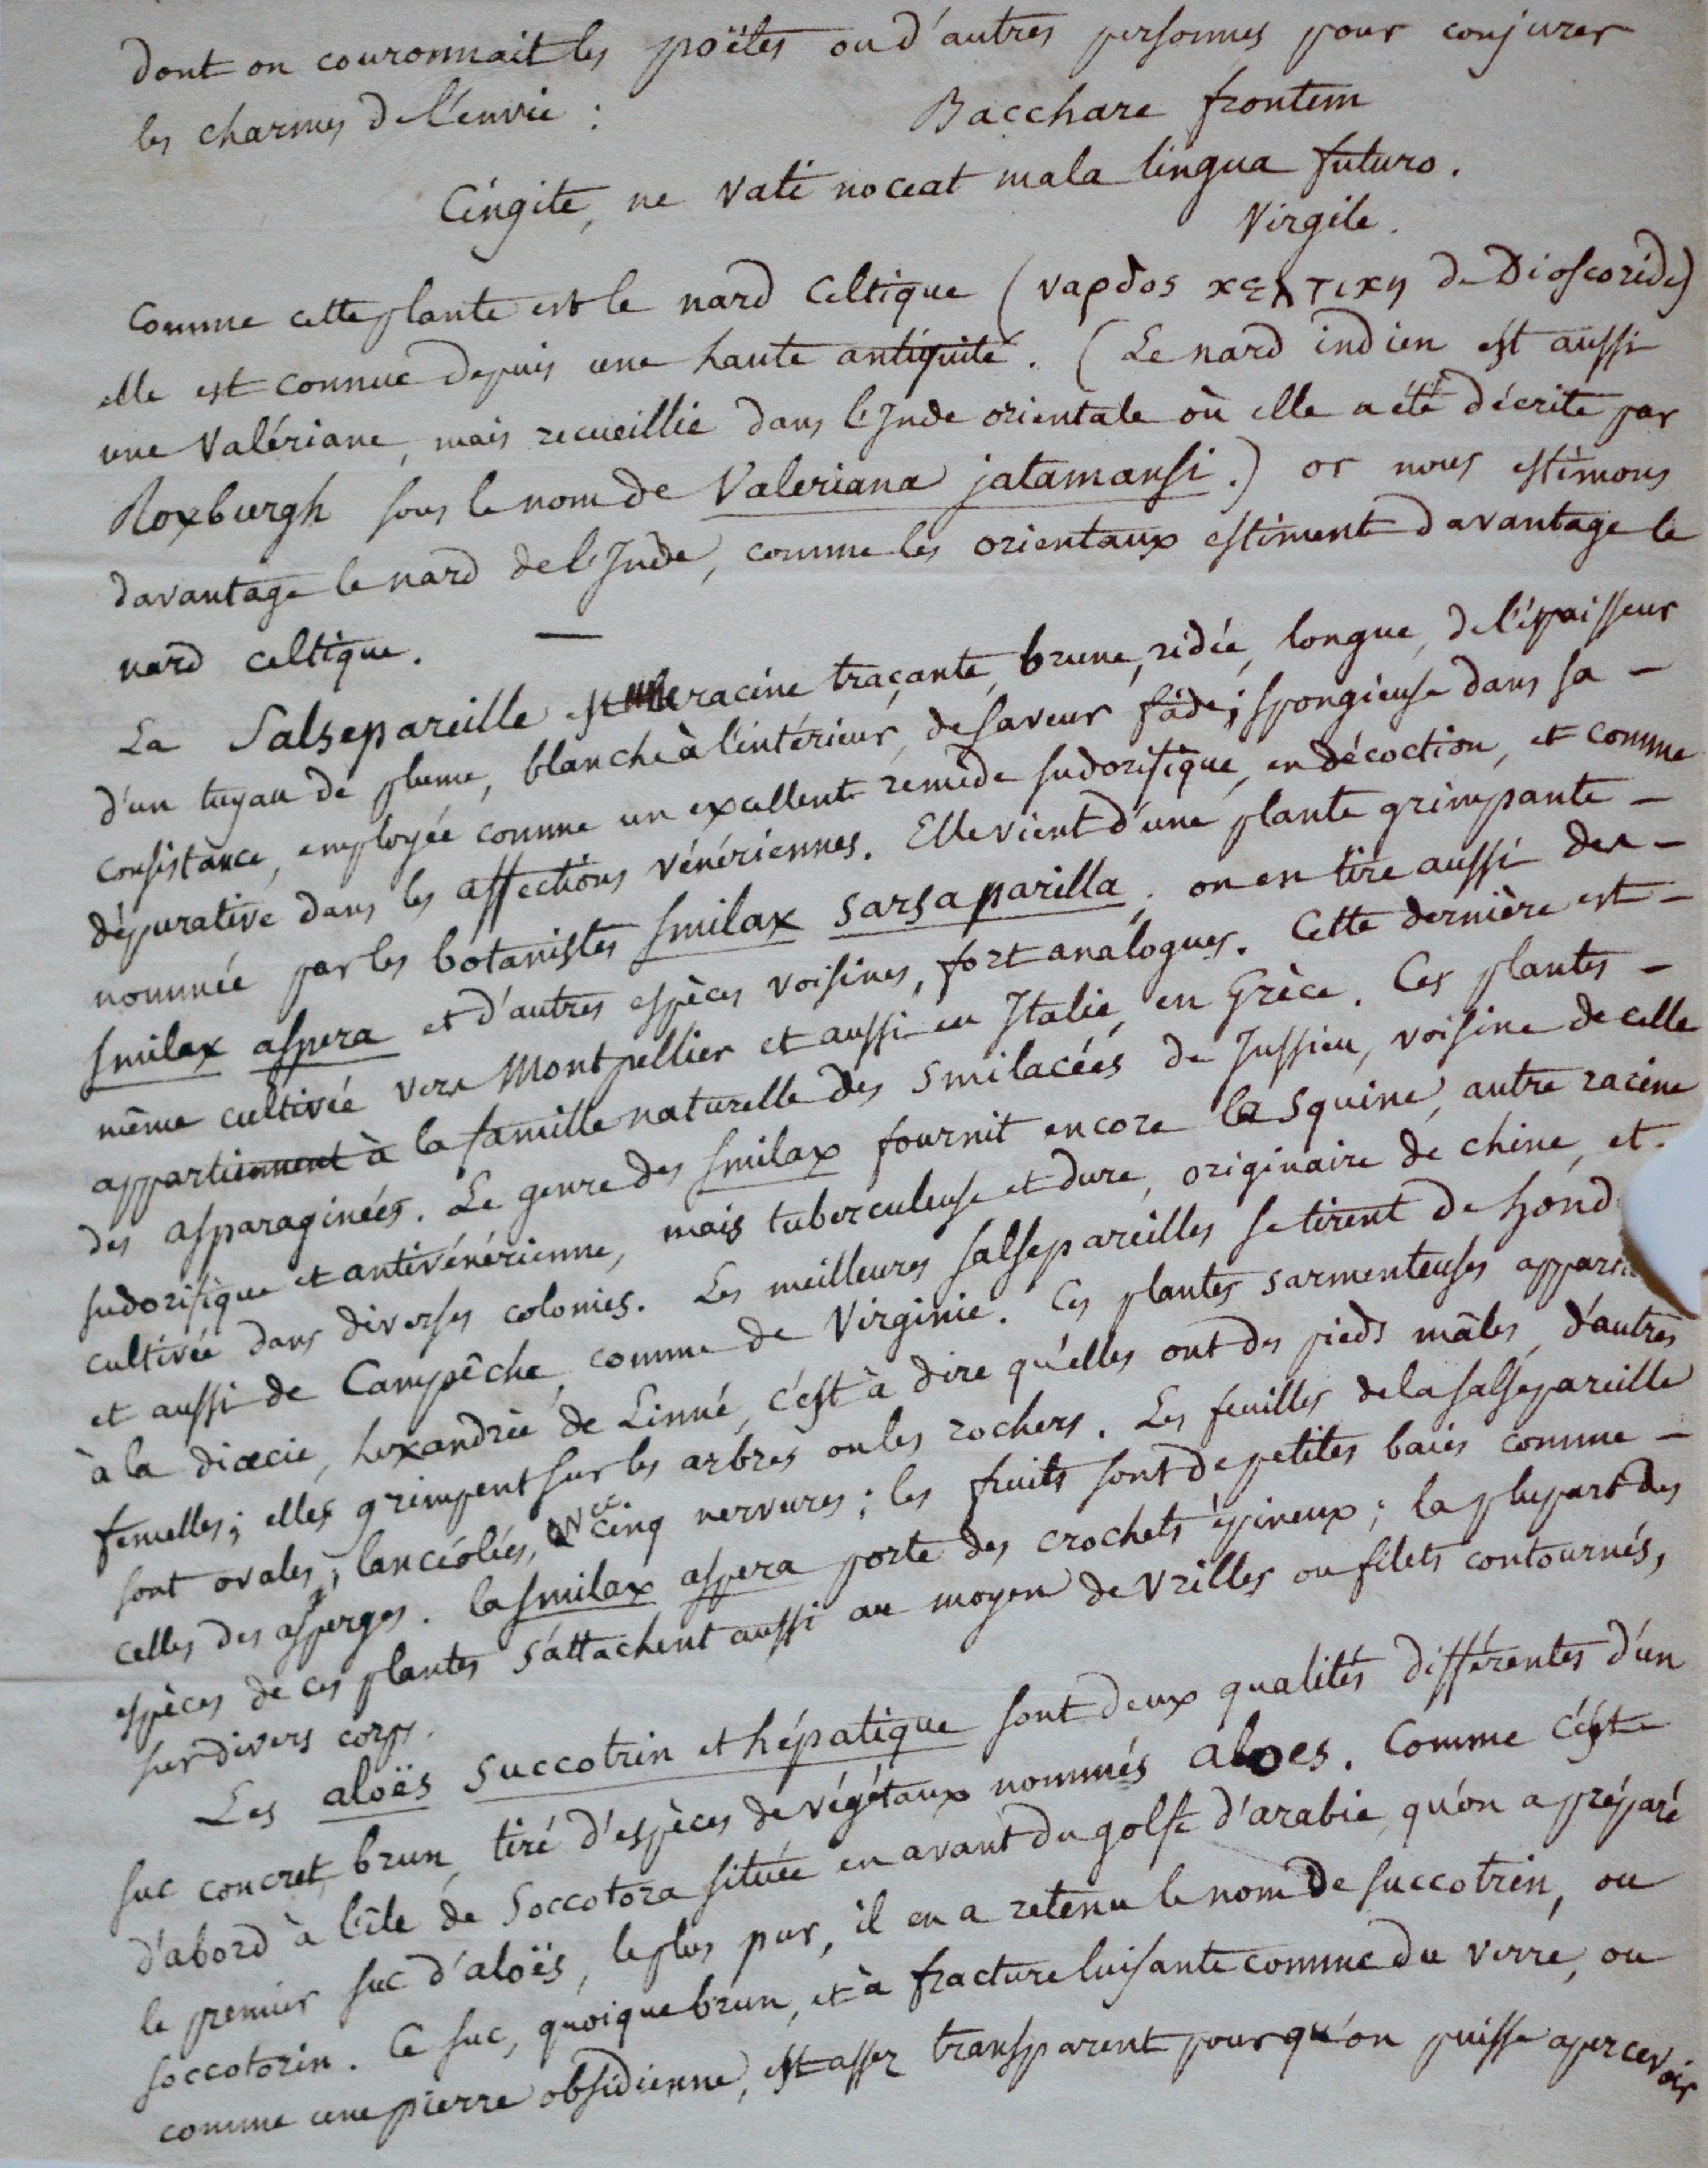 dont on couronnait les poëtes ou d'autres personnes pour conjurer
les charmes de l'envie :
Bacchare frontem
Cingite, ne vati noceat mala lingua futuro.
Virgile.
Comme cette plante est le nard Celtique (ναρδος κελτικη de Dioscoride)
elle est connue depuis une haute antiquité. (Le nard indien est aussi
une Valériane, mais recueillie dans l'Inde orientale où elle a été décrite par
Roxburgh sous le nom de Valeriana jatamansi.) or nous estimons
davantage le nard de l'Inde, comme les orientaux estiment davantage le
nard celtique. —
La Salsepareille est une racine traçante, brune, ridée, longue, de l'épaisseur
d'un tuyau de plume, blanche à l'intérieur, de saveur fade; spongieuse dans sa -
consistance, employée comme un excellent remède sudorifique, en décoction, et comme
dépurative dans les affections vénériennes. Elle vient d'une plante grimpante -
nommée par les botanistes Smilax sarsaparilla. on en tire aussi des -
Smilax aspera et d'autres espèces voisines, fort analogues. Cette dernière est -
même cultivée vers Montpellier et aussi en Italie, en Grèce. Ces plantes -
appartiennent à la famille naturelle des Smilacées de Jussieu, voisine de celle
des asparaginées. Le genre des Smilax fournit encore la Squine, autre racine
sudorifique et antivénérienne, mais tuberculeuse et dure, originaire de chine, et -
cultivée dans diverses colonies. Les meilleures salsepareilles se tirent de hond
et aussi de Campêche, comme de Virginie. Ces plantes sarmenteuses appar
à la diœcie, hexandrie de Linné, c'est à dire qu'elles ont des pieds mâles, d'autres
femelles; elles grimpent sur les arbres ou les rochers. Les feuilles de la salsepareille
sont ovales, lancéolées, avec cinq nervures; les fruits sont de petites baies comme -
celles des asperges. la Smilax aspera porte des crochets épineux; la plupart des
espèces de ces plantes s'attachent aussi au moyen de vrilles ou filets contournés,
sur divers corps.
Les aloës succotrin et hépatique sont deux qualités différentes d'un
suc concret, brun, tiré d'espèces de végétaux nommés aloes. Comme c'est
d'abord à l'ile de Soccotora située en avant du golfe d'arabie, qu'on a préparé
le premier suc d'aloës, le plus pur, il en a retenu le nom de succotrin, ou
soccotorin. Ce suc, quoique brun, et à fracture luisante comme du verre, ou
comme une pierre obsidienne, est assez transparent pour qu'on puisse apercevoir